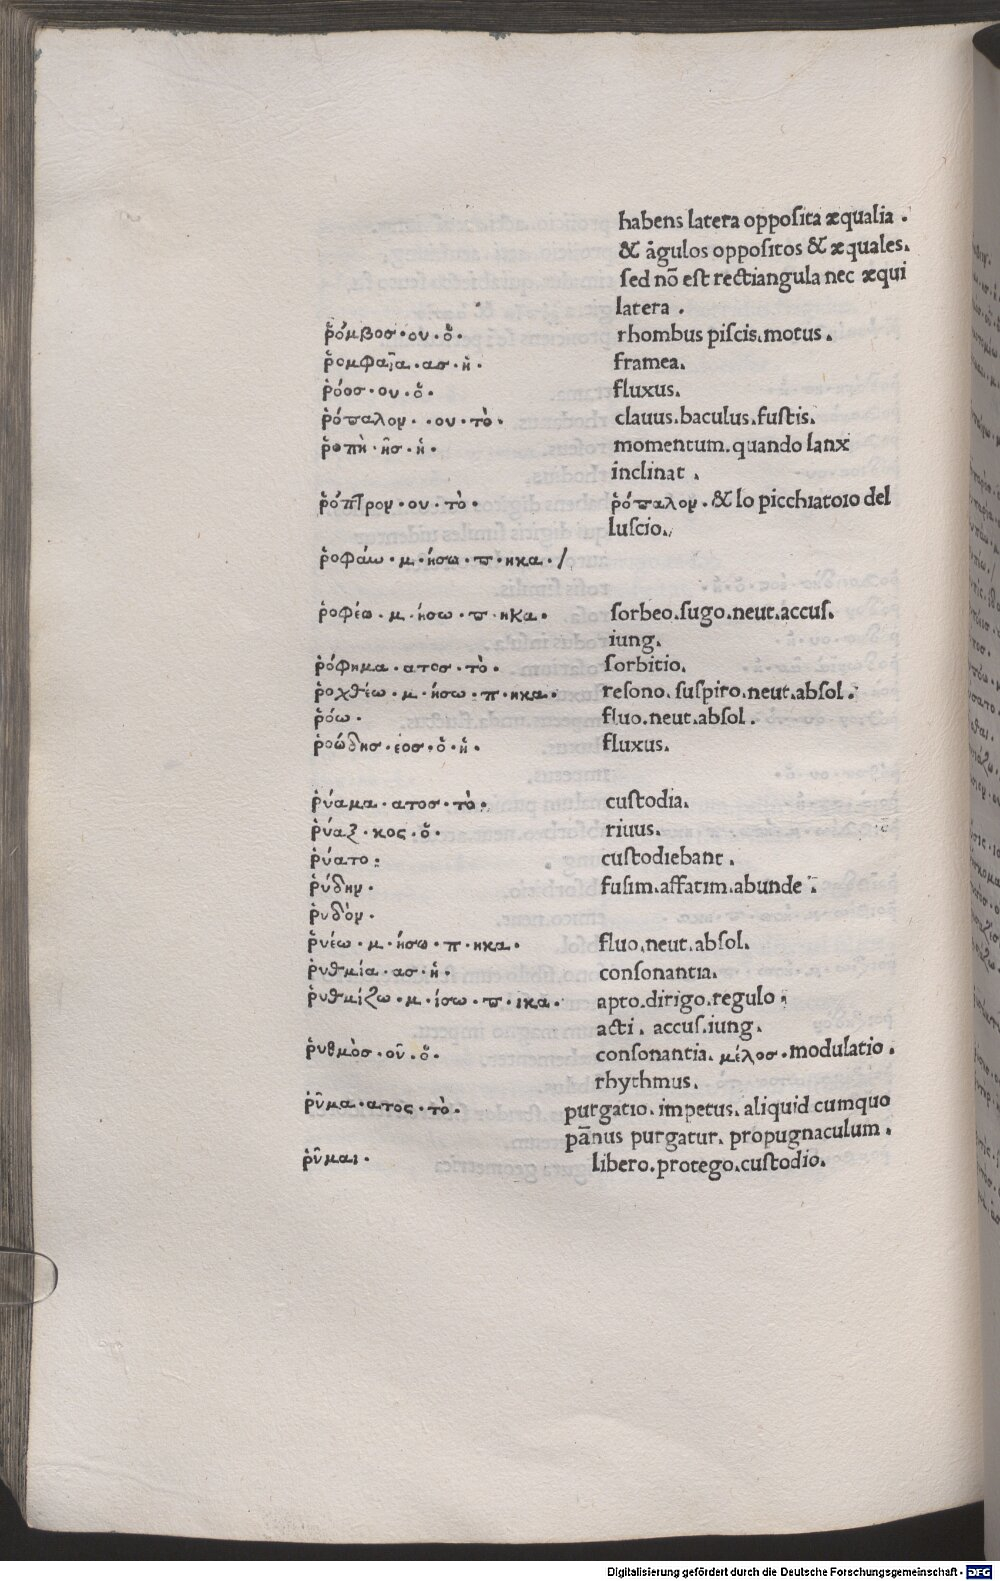 habens latera opposita æqualia .
& āgulos oppositos & æquales.
sed nō est rectiangula nec æqui
latera .
ῥόμβοσ·ου·ὁ. rhombus piscis.motus .
ῥομφαία·ασ·ἡ. framea.
ῥόοσ·ου·ὁ. fluxus.
ῥόπαλον··ου·τὸ. clauus.baculus.fustis.
ῥοπὴ·ῆσ·ἡ. momentum.quando lanx
inclinat .
ῥόπτρον·ου·τὸ. ῥόπαλον.& lo picchiatoio del
luscio.
ῥοφάω·μ·ήσω·π·ηκα./
ῥοφέω·μ·ήσω·π·ηκα. sorbeo.sugo.neut.accus.
iung.
ῥόφημα·ατοσ·τὸ. sorbitio.
ῥοχθέω·μ·ήσω·π·ηκα. resono.suspiro.neut.absol.
ῥόω. fluo.neut.absol.
ῥοώδησ·εοσ·ὁ·ἡ. fluxus.
ῥύαμα·ατοσ·τὸ. custodia.
ῥύαξ·κος·ὁ. riuus.
ῥύατο: custodiebant .
ῥύδην. fusim.affatim.abunde :
ῥυδόν.
ῥυέω·μ·ήσω·π·ηκα. fluo.neut.absol.
ῥυθμία·ασ·ἡ. consonantia.
ῥυθμίζω·μ·ίσω·π·ικα. apto.dirigo.regulo ;
acti. accus.iung.
ῥυθμὸσ·οῦ·ὁ. consonantia. μέλοσ.modulatio .
rhythmus.
ῥῦμα·ατος·τὸ. purgatio.impetus.aliquid cumquo
pānus purgatur. propugnaculum .
ῥῦμαι. libero.protego.custodio.
Digitalisierung gefördert durch die Deutsche Forschungsgemeinschaft - DFG